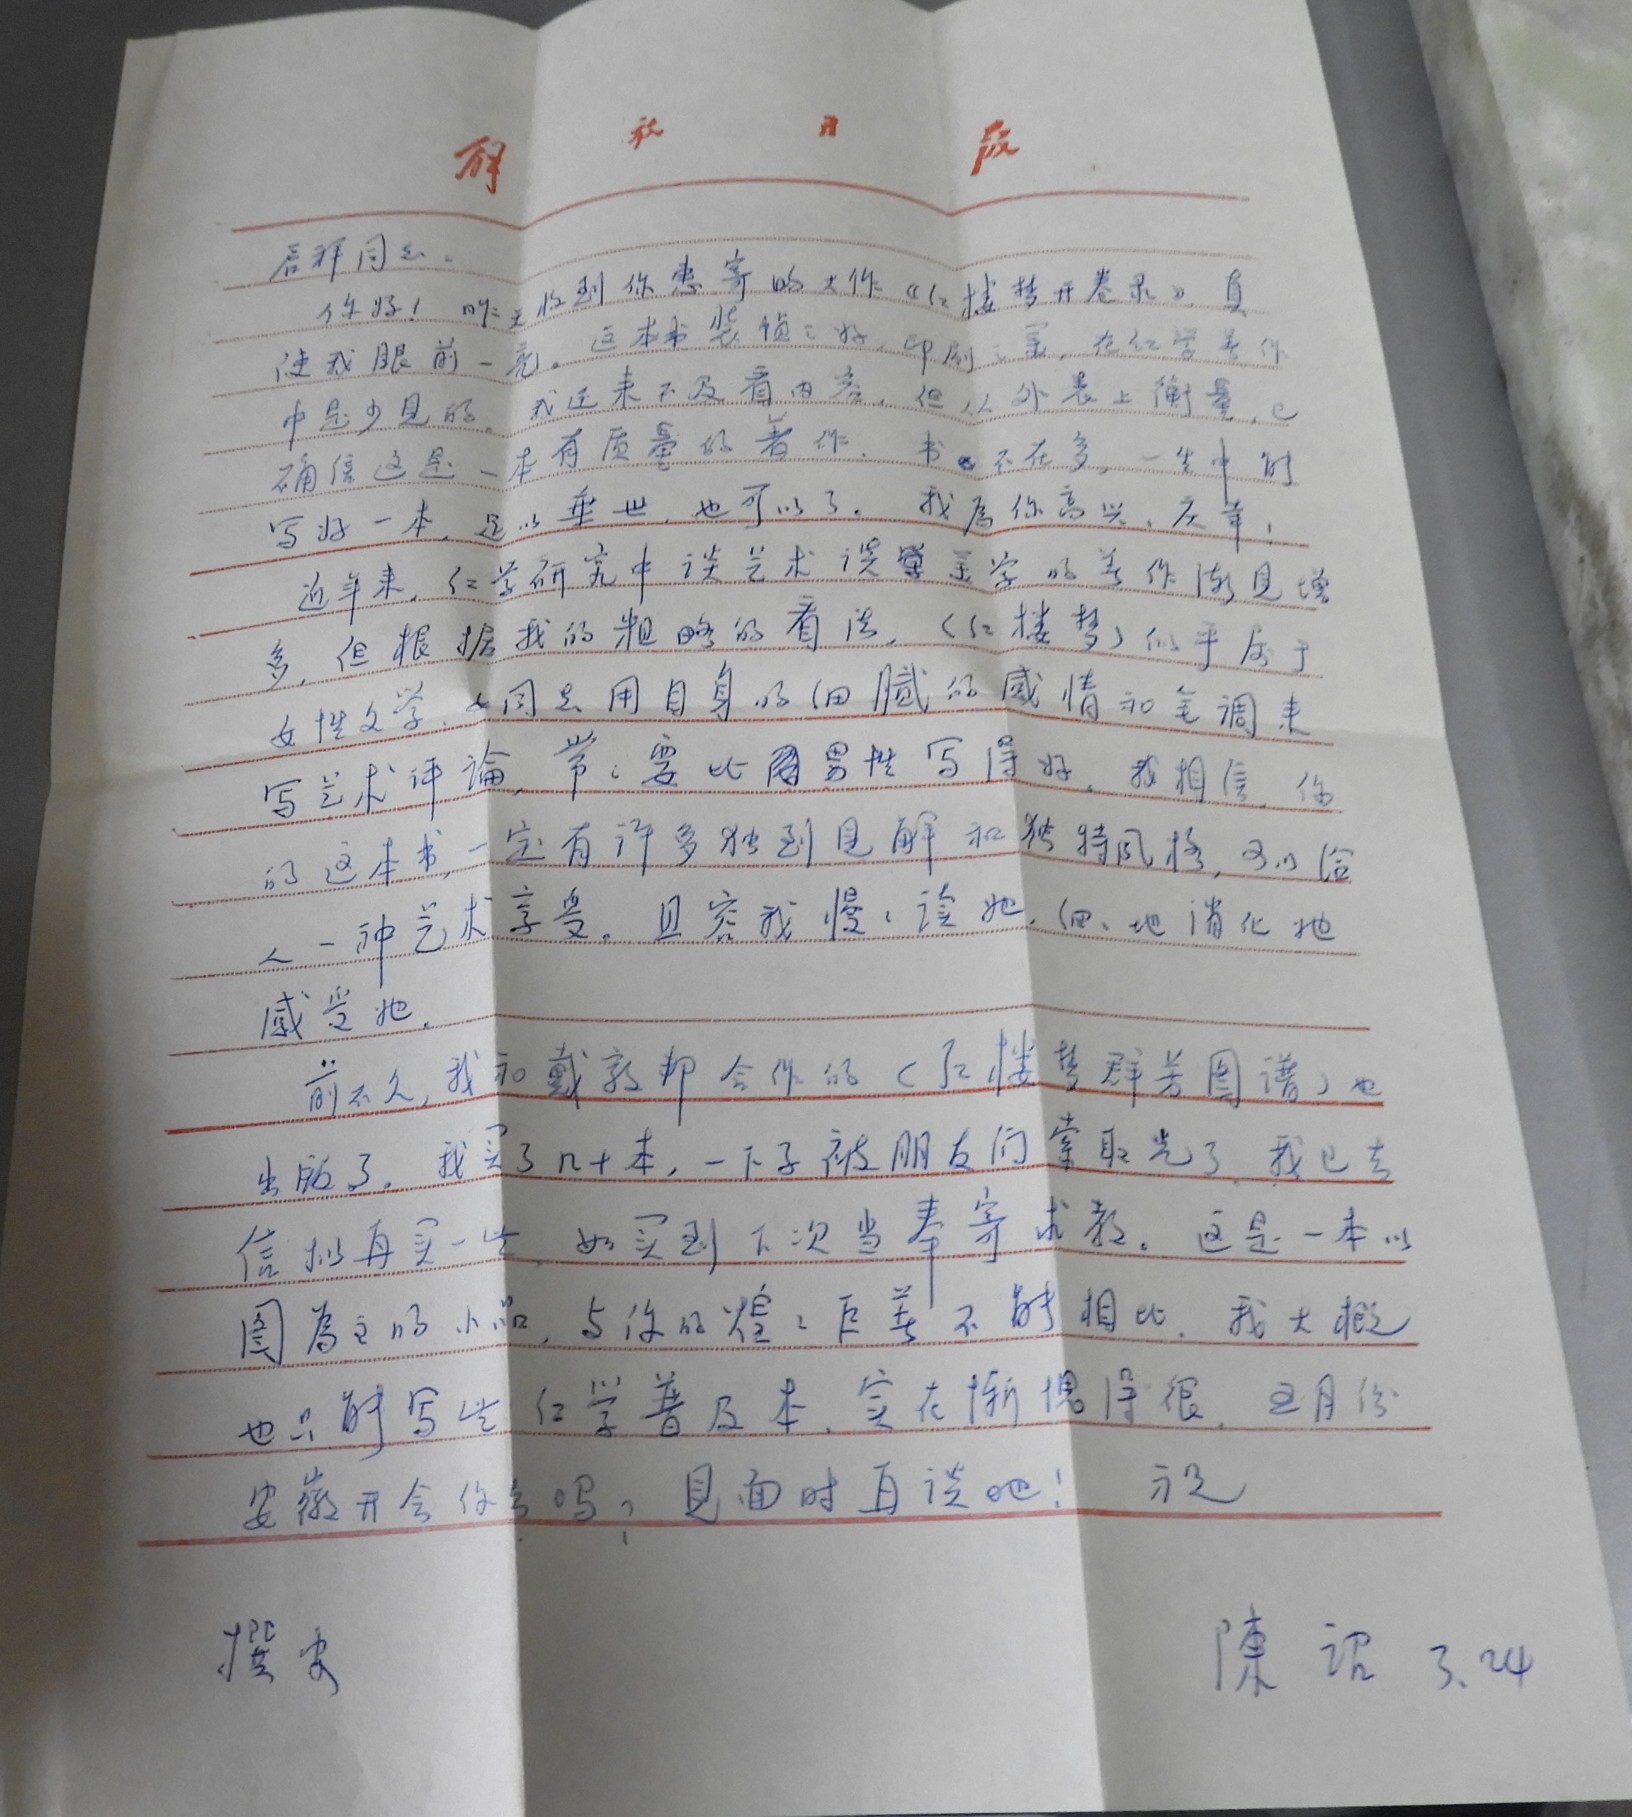 解放日报
启祥同志：
你好！昨天收到你惠寄的大作《红楼梦开卷录》，真
使我眼前一亮。这本书装帧之好，印刷之美，在红学著作
中是少见的。我还来不及看内容，但从外表上衡量，已
确信这是一本有质量的著作。书不在多，一生中能
写好一本，足以垂世，也可以了。我为你高兴、庆幸！
近年来，红学研究中谈艺术谈美学的著作渐见增
多，但根据我的粗略的看法，《红楼梦》似乎属于
女性文学，女同志用自身的细腻的感情和笔调来
写艺术评论，常々要比男性写得好。我相信，你
的这本书，一定有许多独到见解和独特风格，可以给
人一种艺术享受。且容我慢々读她，细々地消化她
感受她。
前不久，我和戴敦邦合作的《红楼梦群芳图谱》也
出版了。我买了几十本，一下子被朋友们索取光了，我已去
信拟再买一些，如买到下次当奉寄求教。这是一本以
图為主的小品，与你的煌々巨著不能相比。我大概
也只能写些红学普及本，实在惭愧得很。五月份
安徽开会你去吗？见面时再谈吧！ 祝
撰安
陳诏 3.24